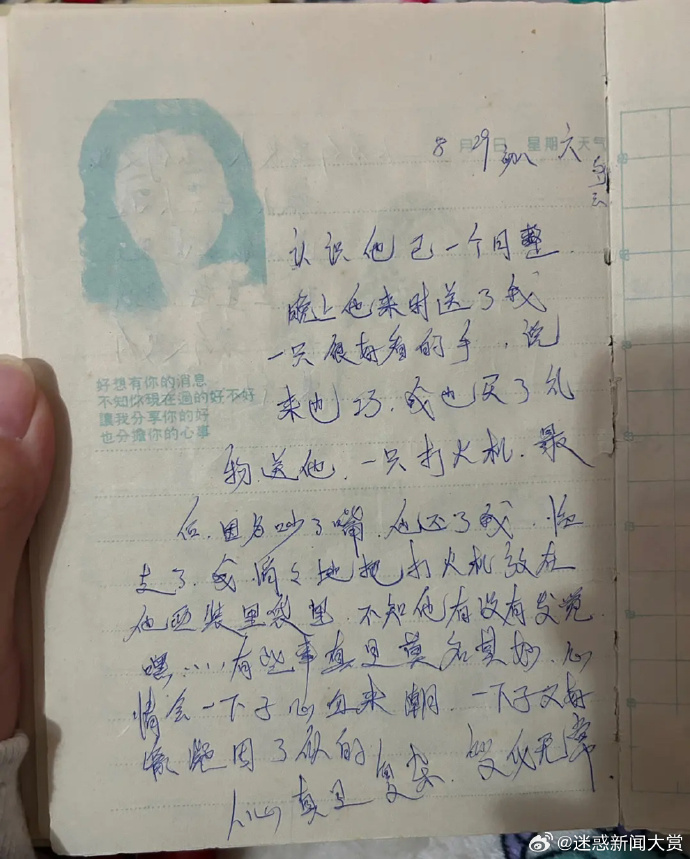 8月29日 星期六 天气
认识他已一个月整
晚上他来时送了我
一只很好看的手 说
来也巧.我也买了礼
物送他.一只打火机.最
后.因为吵了嘴.他还了我.临
走了.我悄々地把打火机放在
他西装里袋里.不知他有没有发觉
嘿……有些事真是莫名其妙.心
情会一下子心血来潮.一下子又好
人心真是复杂.变化无常
好想有你的消息
不知你現在過的好不好
讓我分享你的好
也分擔你的心事
@迷惑新闻大赏